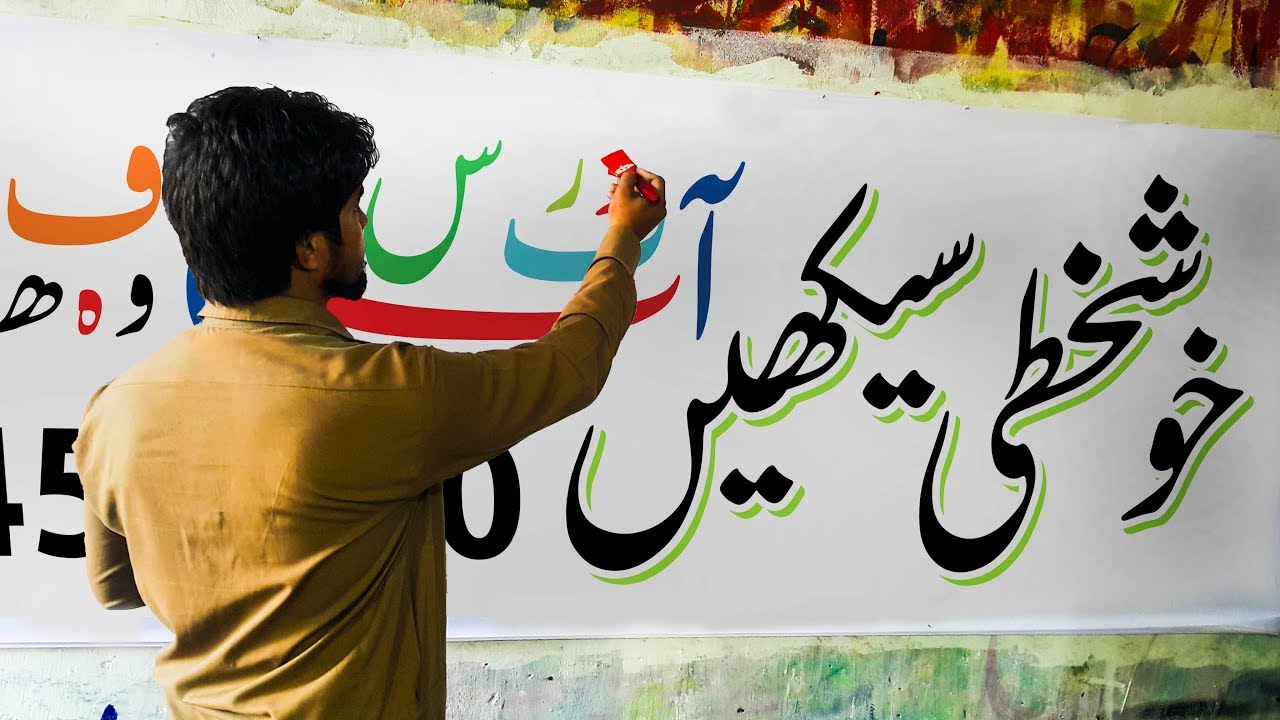 خوشخطی سیکھیں
آ ب ف ر س ف
و ہ ھ
45 0